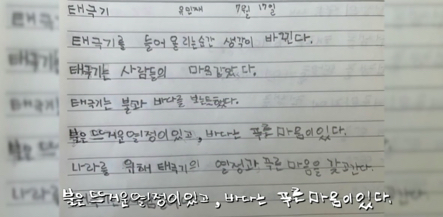 태극기 유민재 7월 17일
태극기를 들어 올리는순간 생각이 바뀐다.
태극기는 사람들의 마음같았다.
태극기는 불과 바다를 보는듯했다.
불은 뜨거운 열정이 있고, 바다는 푸른 마음이있다.
나라를 위해 태극기의 열정과 푸른 마음을 갖고간다.
불은 뜨거운 열정이 있고, 바다는 푸른 마음이 있다.